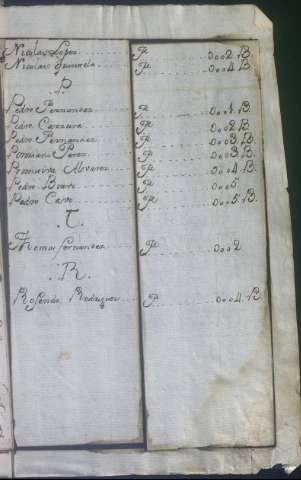 Nicolas Lopez . . . . P. . . . . 0002.B.
Nicolas . . . . P. . . . . 0004.B.
.P.
Pedro Fernandez . . . . P. . . . . 0001.B.
Pedro . . . . P. . . . . 0002.B.
Pedro Fernandez . . . . P. . . . . 0003.B.
Perez . . . . P. . . . . 0003.B.
Alvarez . . . . P. . . . . 0004.B.
Pedro . . . . P. . . . . 0005.
Pedro Castro . . . . P. . . . . 0005.B.
.T.
Thomas Fernandez . . . . P. . . . . 0002
.R.
Rosendo Rodriguez . . . . P. . . . . 0004.B.